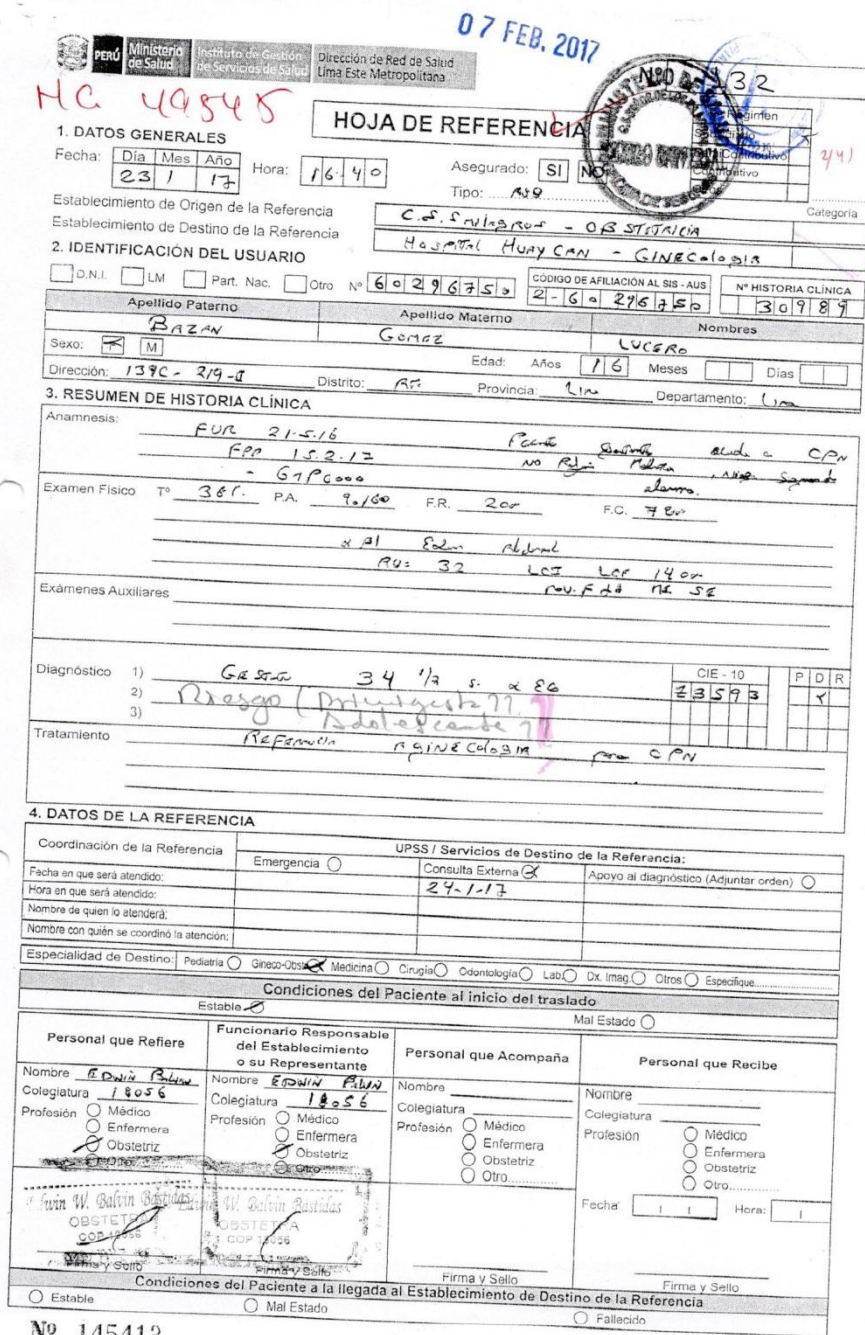 07 FEB. 2017
PERÚ Ministerio de Salud Instituto de Gestión de Servicios de Salud Dirección de Red de Salud Lima Este Metropolitana
HC 49545
32
HOJA DE REFERENCIA
Régimen
Contributivo
241
1. DATOS GENERALES
Fecha: Día Mes Año Hora: 16:40 Asegurado: SI NO
23 1 17
Tipo:
Categoría
Establecimiento de Origen de la Referencia C.S. - OBSTETRICIA
Establecimiento de Destino de la Referencia HOSPITAL HUAYCAN - GINECOLOGIA
2. IDENTIFICACIÓN DEL USUARIO
D.N.I. LM Part. Nac. Otro Nº 60296750 CÓDIGO DE AFILIACIÓN AL SIS - AUS Nº HISTORIA CLÍNICA
2-60296750 30989
Apellido Paterno Apellido Materno Nombres
BAZAN GOMEZ LUCERO
Sexo: F M Edad: Años 16 Meses Días
Dirección: 139C - 219- Distrito: Provincia: Lima Departamento: Lima
3. RESUMEN DE HISTORIA CLÍNICA
Anamnesis:
FUR 21-5-16 acude a CPN
FPP 15.2.17 NO
- G1P0000
Examen Físico Tº P.A. 90/60 F.R. 20 F.C. 78
AU: 32 LCI LCF 140
Exámenes Auxiliares
Diagnóstico 1) 34 1/2 s. x EG CIE - 10 P D R
Z3593
2) Riesgo (
3) Adolescente
Tratamiento Referencia a GINECOLOGIA para CPN
4. DATOS DE LA REFERENCIA
Coordinación de la Referencia UPSS / Servicios de Destino de la Referencia:
Emergencia Consulta Externa Apoyo al diagnóstico (Adjuntar orden)
Fecha en que será atendido: 24-1-17
Hora en que será atendido:
Nombre de quien lo atenderá:
Nombre con quién se coordinó la atención:
Especialidad de Destino: Pediatría Gineco-Obst Medicina Cirugía Odontología Lab. Dx. Imag. Otros Especifique
Condiciones del Paciente al inicio del traslado
Estable Mal Estado
Personal que Refiere
Nombre EDWIN
Colegiatura 18056
Profesión Médico
Enfermera
Obstetriz
Otro
Edwin W. Balvin Bastidas
OBSTETRA
COP 18056
Firma y Sello
Funcionario Responsable
del Establecimiento
o su Representante
Nombre EDWIN
Colegiatura 18056
Profesión Médico
Enfermera
Obstetriz
Otro
W. Balvin Bastidas
OBSTETRA
COP 18056
Firma y Sello
Personal que Acompaña
Nombre
Colegiatura
Profesión Médico
Enfermera
Obstetriz
Otro
Firma y Sello
Personal que Recibe
Nombre
Colegiatura
Profesión Médico
Enfermera
Obstetriz
Otro
Fecha Hora:
Firma y Sello
Condiciones del Paciente a la llegada al Establecimiento de Destino de la Referencia
Estable Mal Estado Fallecido
Nº 145412